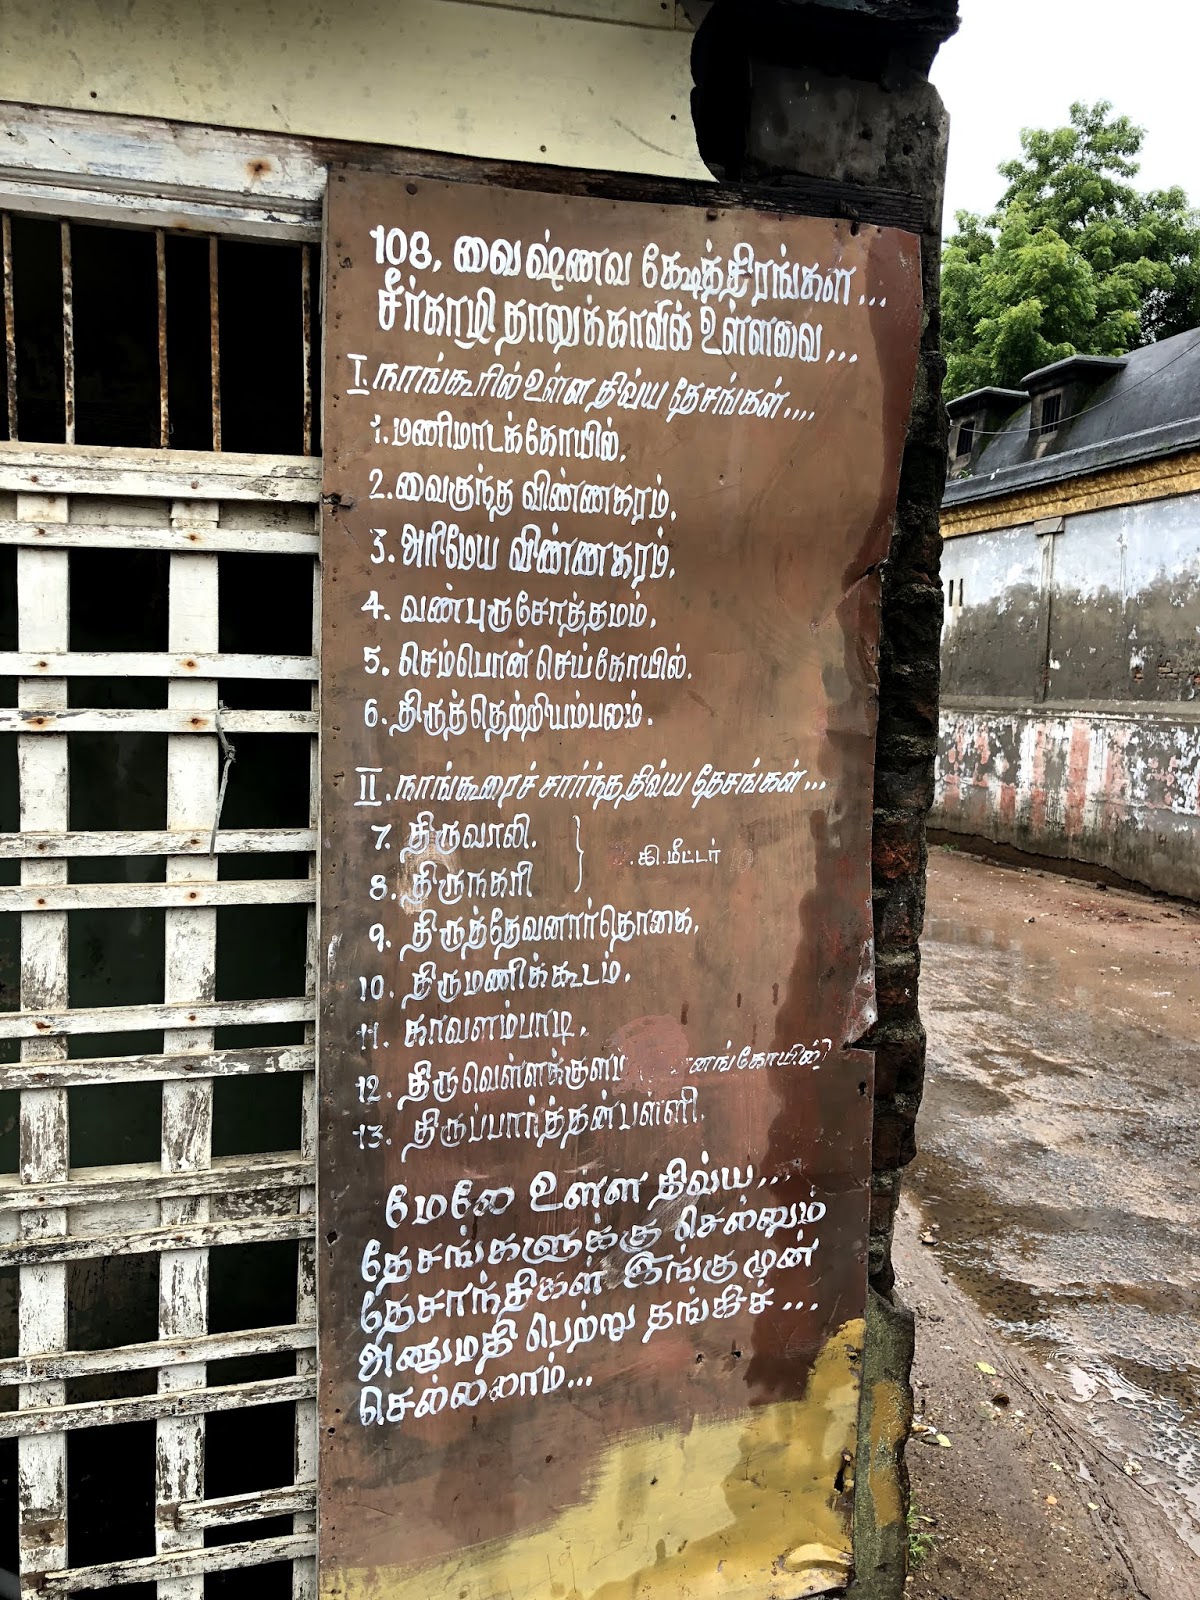 108, வைஷ்ணவ க்ஷேத்திரங்கள் ...
சீர்காழி தாலுக்காவில் உள்ளவை ...
I. நாங்கூரில் உள்ள திவ்ய தேசங்கள் ....
1. மணிமாடக்கோயில்,
2. வைகுந்த விண்ணகரம்,
3. அரிமேய விண்ணகரம்,
4. வண்புருசோத்தமம்,
5. செம்பொன் செய்கோயில்.
6. திருத்தெற்றியம்பலம்.
II. நாங்கூரைச் சார்ந்த திவ்ய தேசங்கள் ...
7. திருவாலி.
கி.மீட்டர்
8. திருநகரி
9. திருத்தேவனார்தொகை,
10. திருமணிக்கூடம்.
11. காவளம்பாடி,
12. திருவெள்ளக்குளம்
13. திருப்பார்த்தன்பள்ளி.
மேலே உள்ள திவ்ய ...
தேசங்களுக்கு செல்லும்
தேசாந்திகள் இங்கு முன்
அனுமதி பெற்று தங்கிச் ...
செல்லலாம் ...